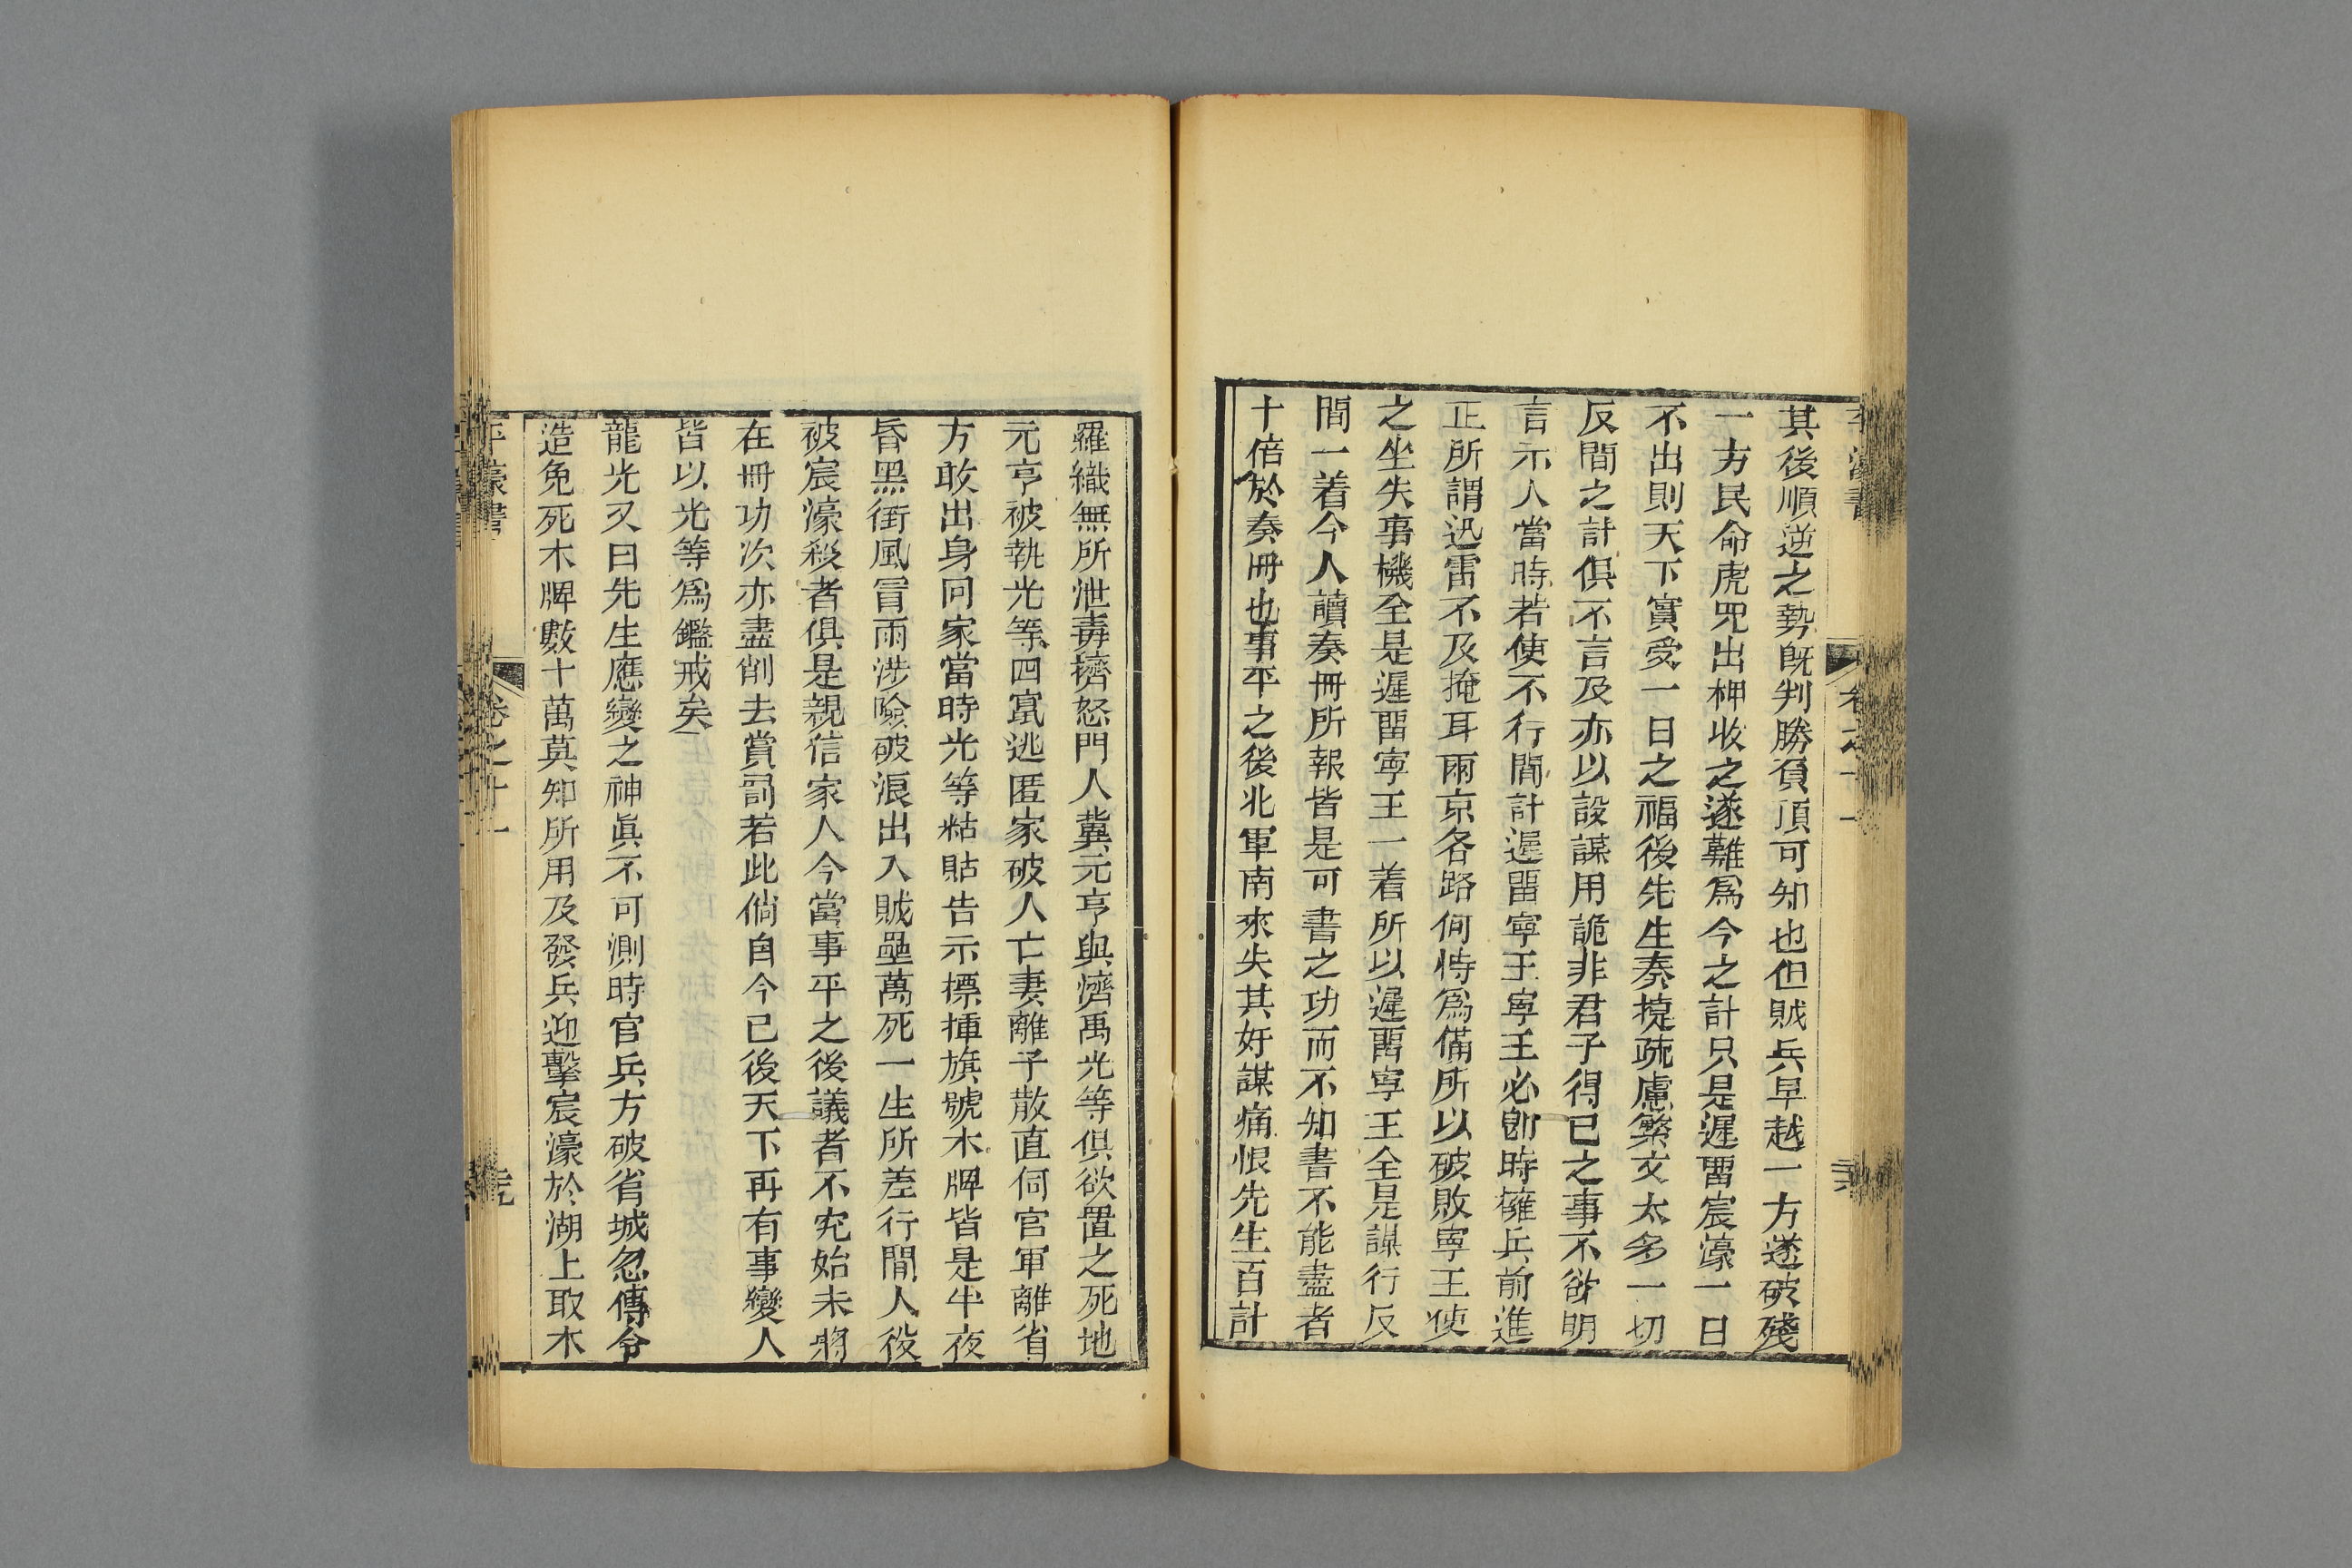 其後順逆之勢既判勝負頂可知也但賊兵早越一方遂破殘
一方民命虎兕出柙收之遂難爲今之計只是遲畱宸濠一日
不出則天下實受一日之福後先生奏捷疏慮繁文太多一切
反間之計俱不言及亦以設謀用詭非君子得已之事不欲明
言示人當時若使不行間計遲畱寧王寧王必卽時擁兵前進
正所謂迅雷不及掩耳兩京各路何恃爲備所以破敗寧王使
之坐失事機全是遲畱寧王一着所以遲畱寧王全是謀行反
間一着今人讀奏冊所報皆是可書之功而不知書不能盡者
十倍於奏冊也事平之後北軍南來失其奸謀痛恨先生百計
羅織無所泄毒擠怒門人冀元亨與濟禹光等俱欲置之死地
元亨被執光等四竄逃匿家破人亡妻離子散直伺官軍離省
方敢出身回家當時光等粘貼告示摽揷旗號木牌皆是半夜
昏黑街風冒雨涉險破浪出入賊壘萬死一生所差行間人役
被宸濠殺者俱是親信家人今當事平之後議者不究始末將
在冊功次亦盡削去賞罰若此倘自今已後天下再有事變人
皆以光等爲鑑戒矣
龍光又曰先生應變之神眞不可測時官兵方破省城忽傳令
造免死木牌數十萬莫知所用及發兵迎擊宸濠於湖上取木
平濠書 卷之十一